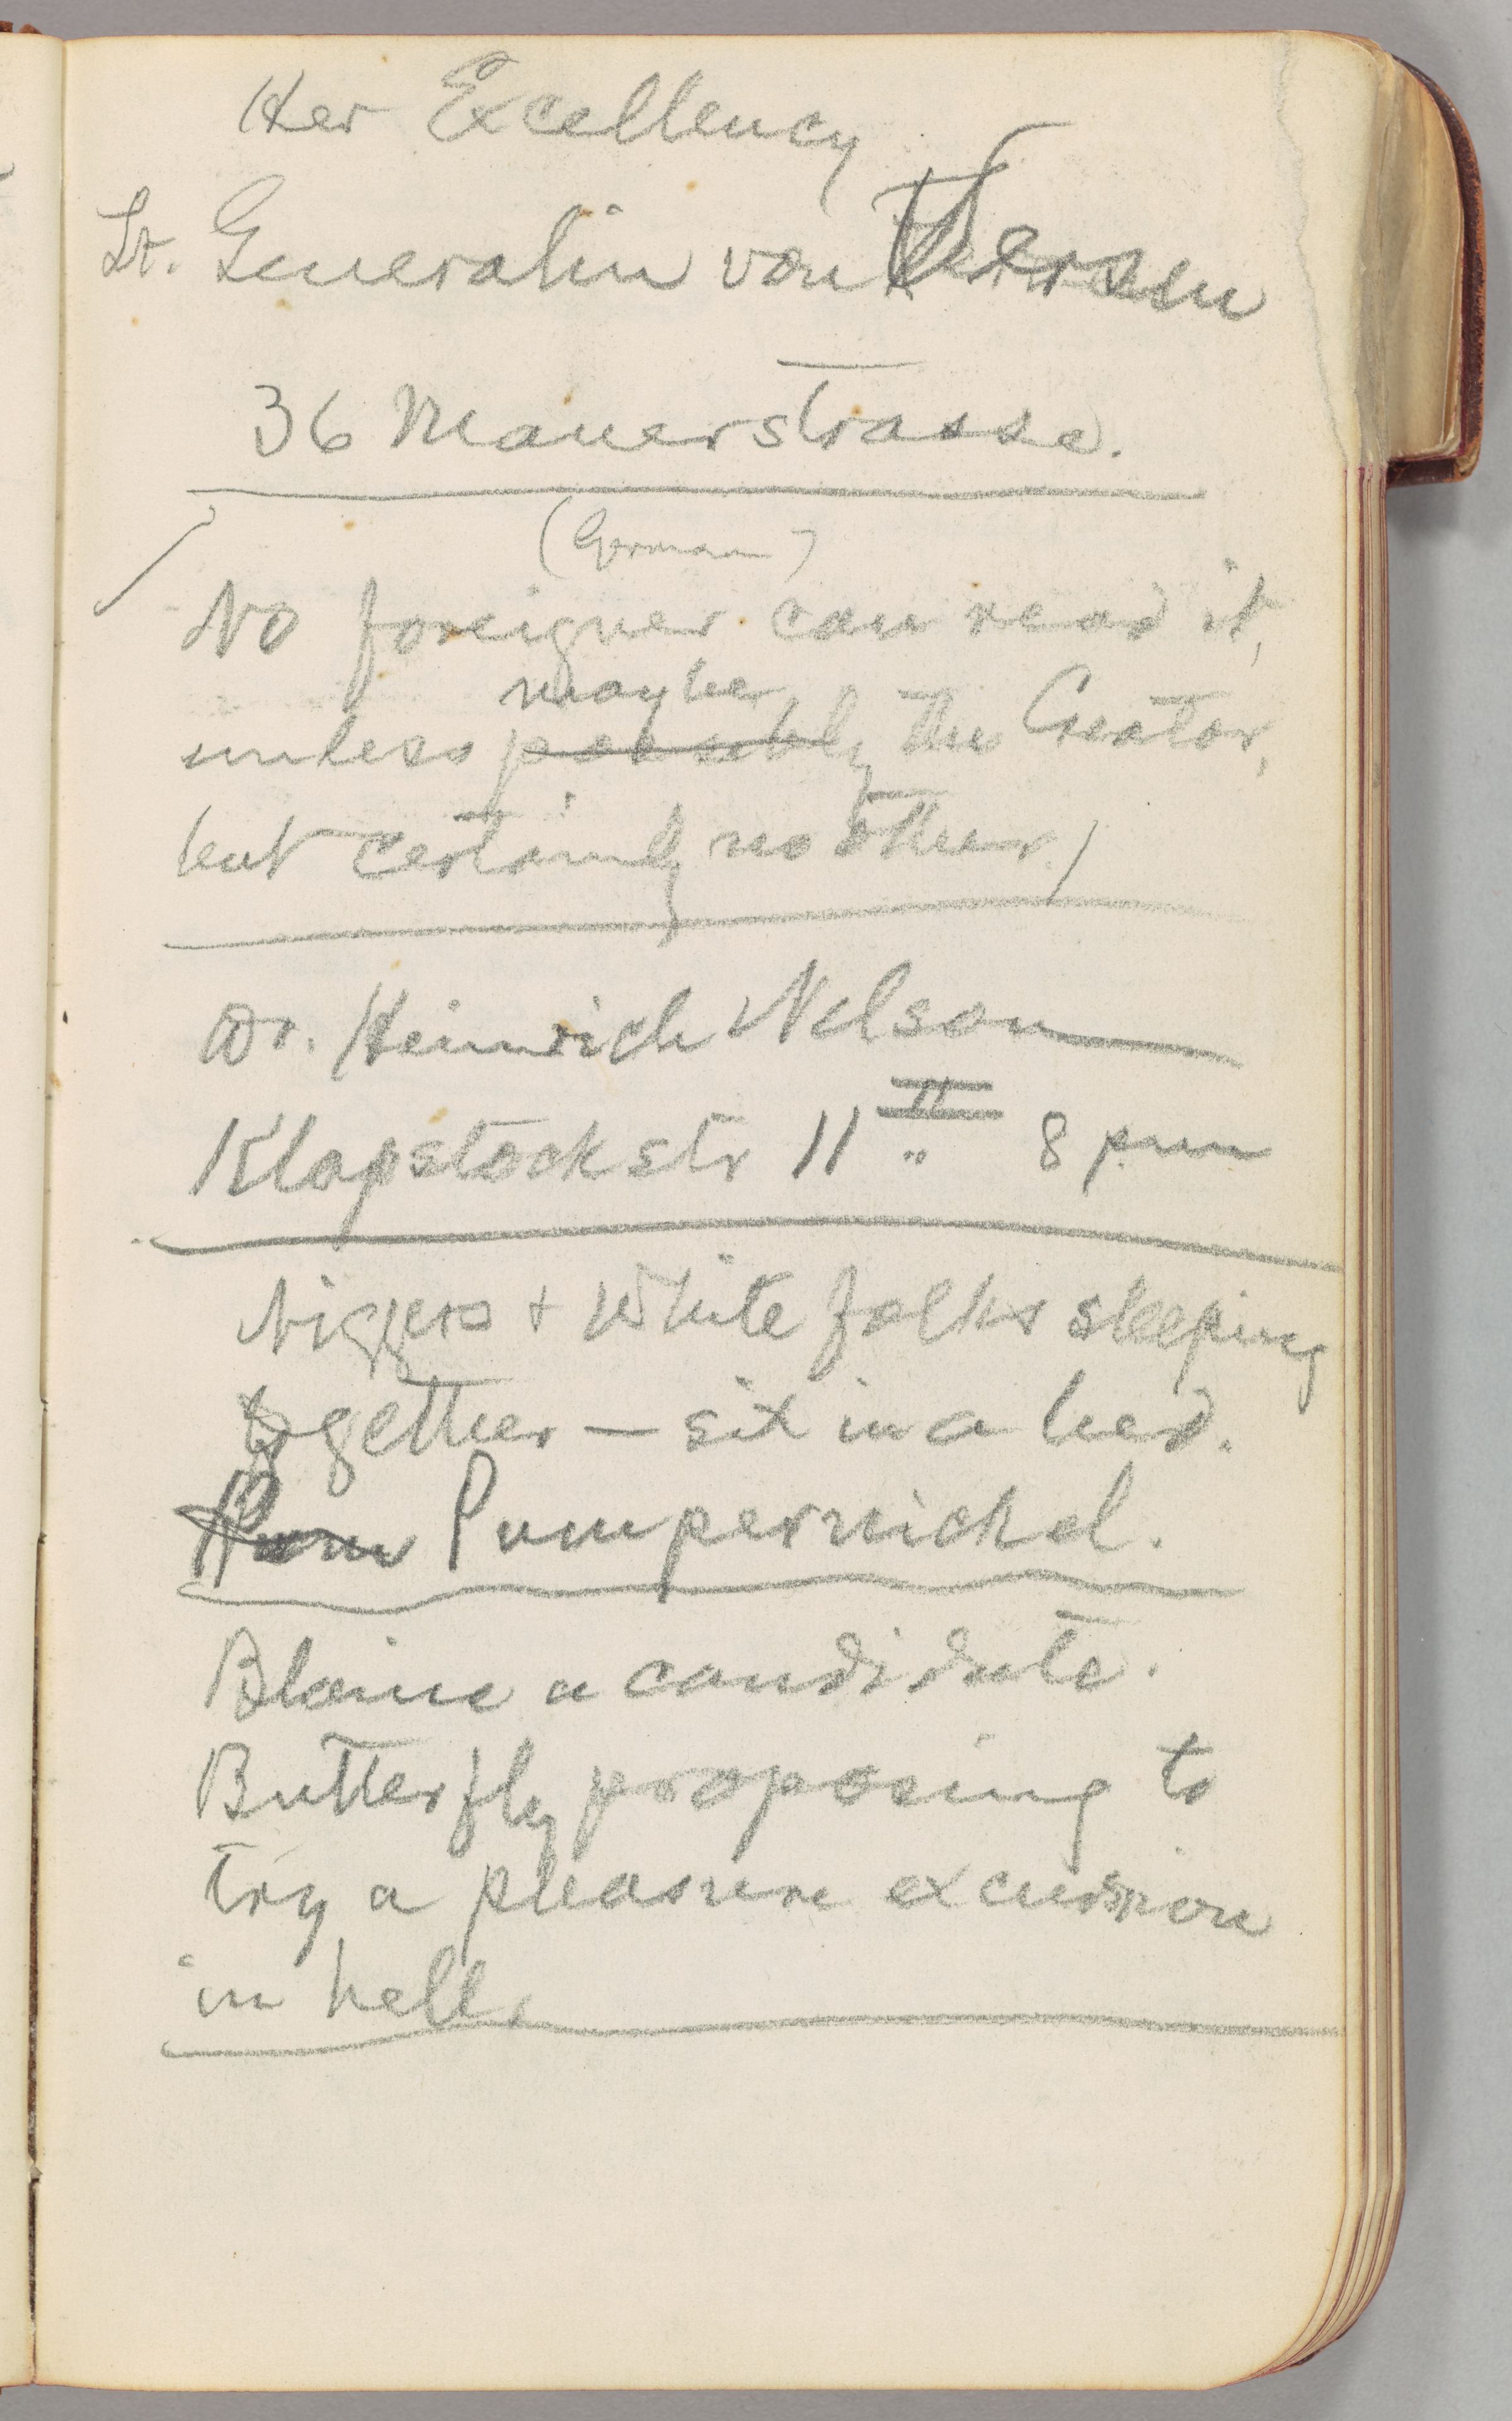 Her Excellency
Lt. Generalin von Versen
36 Mauerstrasse.
(German)
No foreigner can read it,
maybe
unless possibly the Creator,
but certainly no other.)
Dr. Heinrich Nelson
Klopstockstr 11 II 8 pm
Niggers + White folks sleeping
together — six in a bed.
Pumpernickel.
Blaine a candidate.
Butterfly proposing to
try a pleasure excursion
in hell.